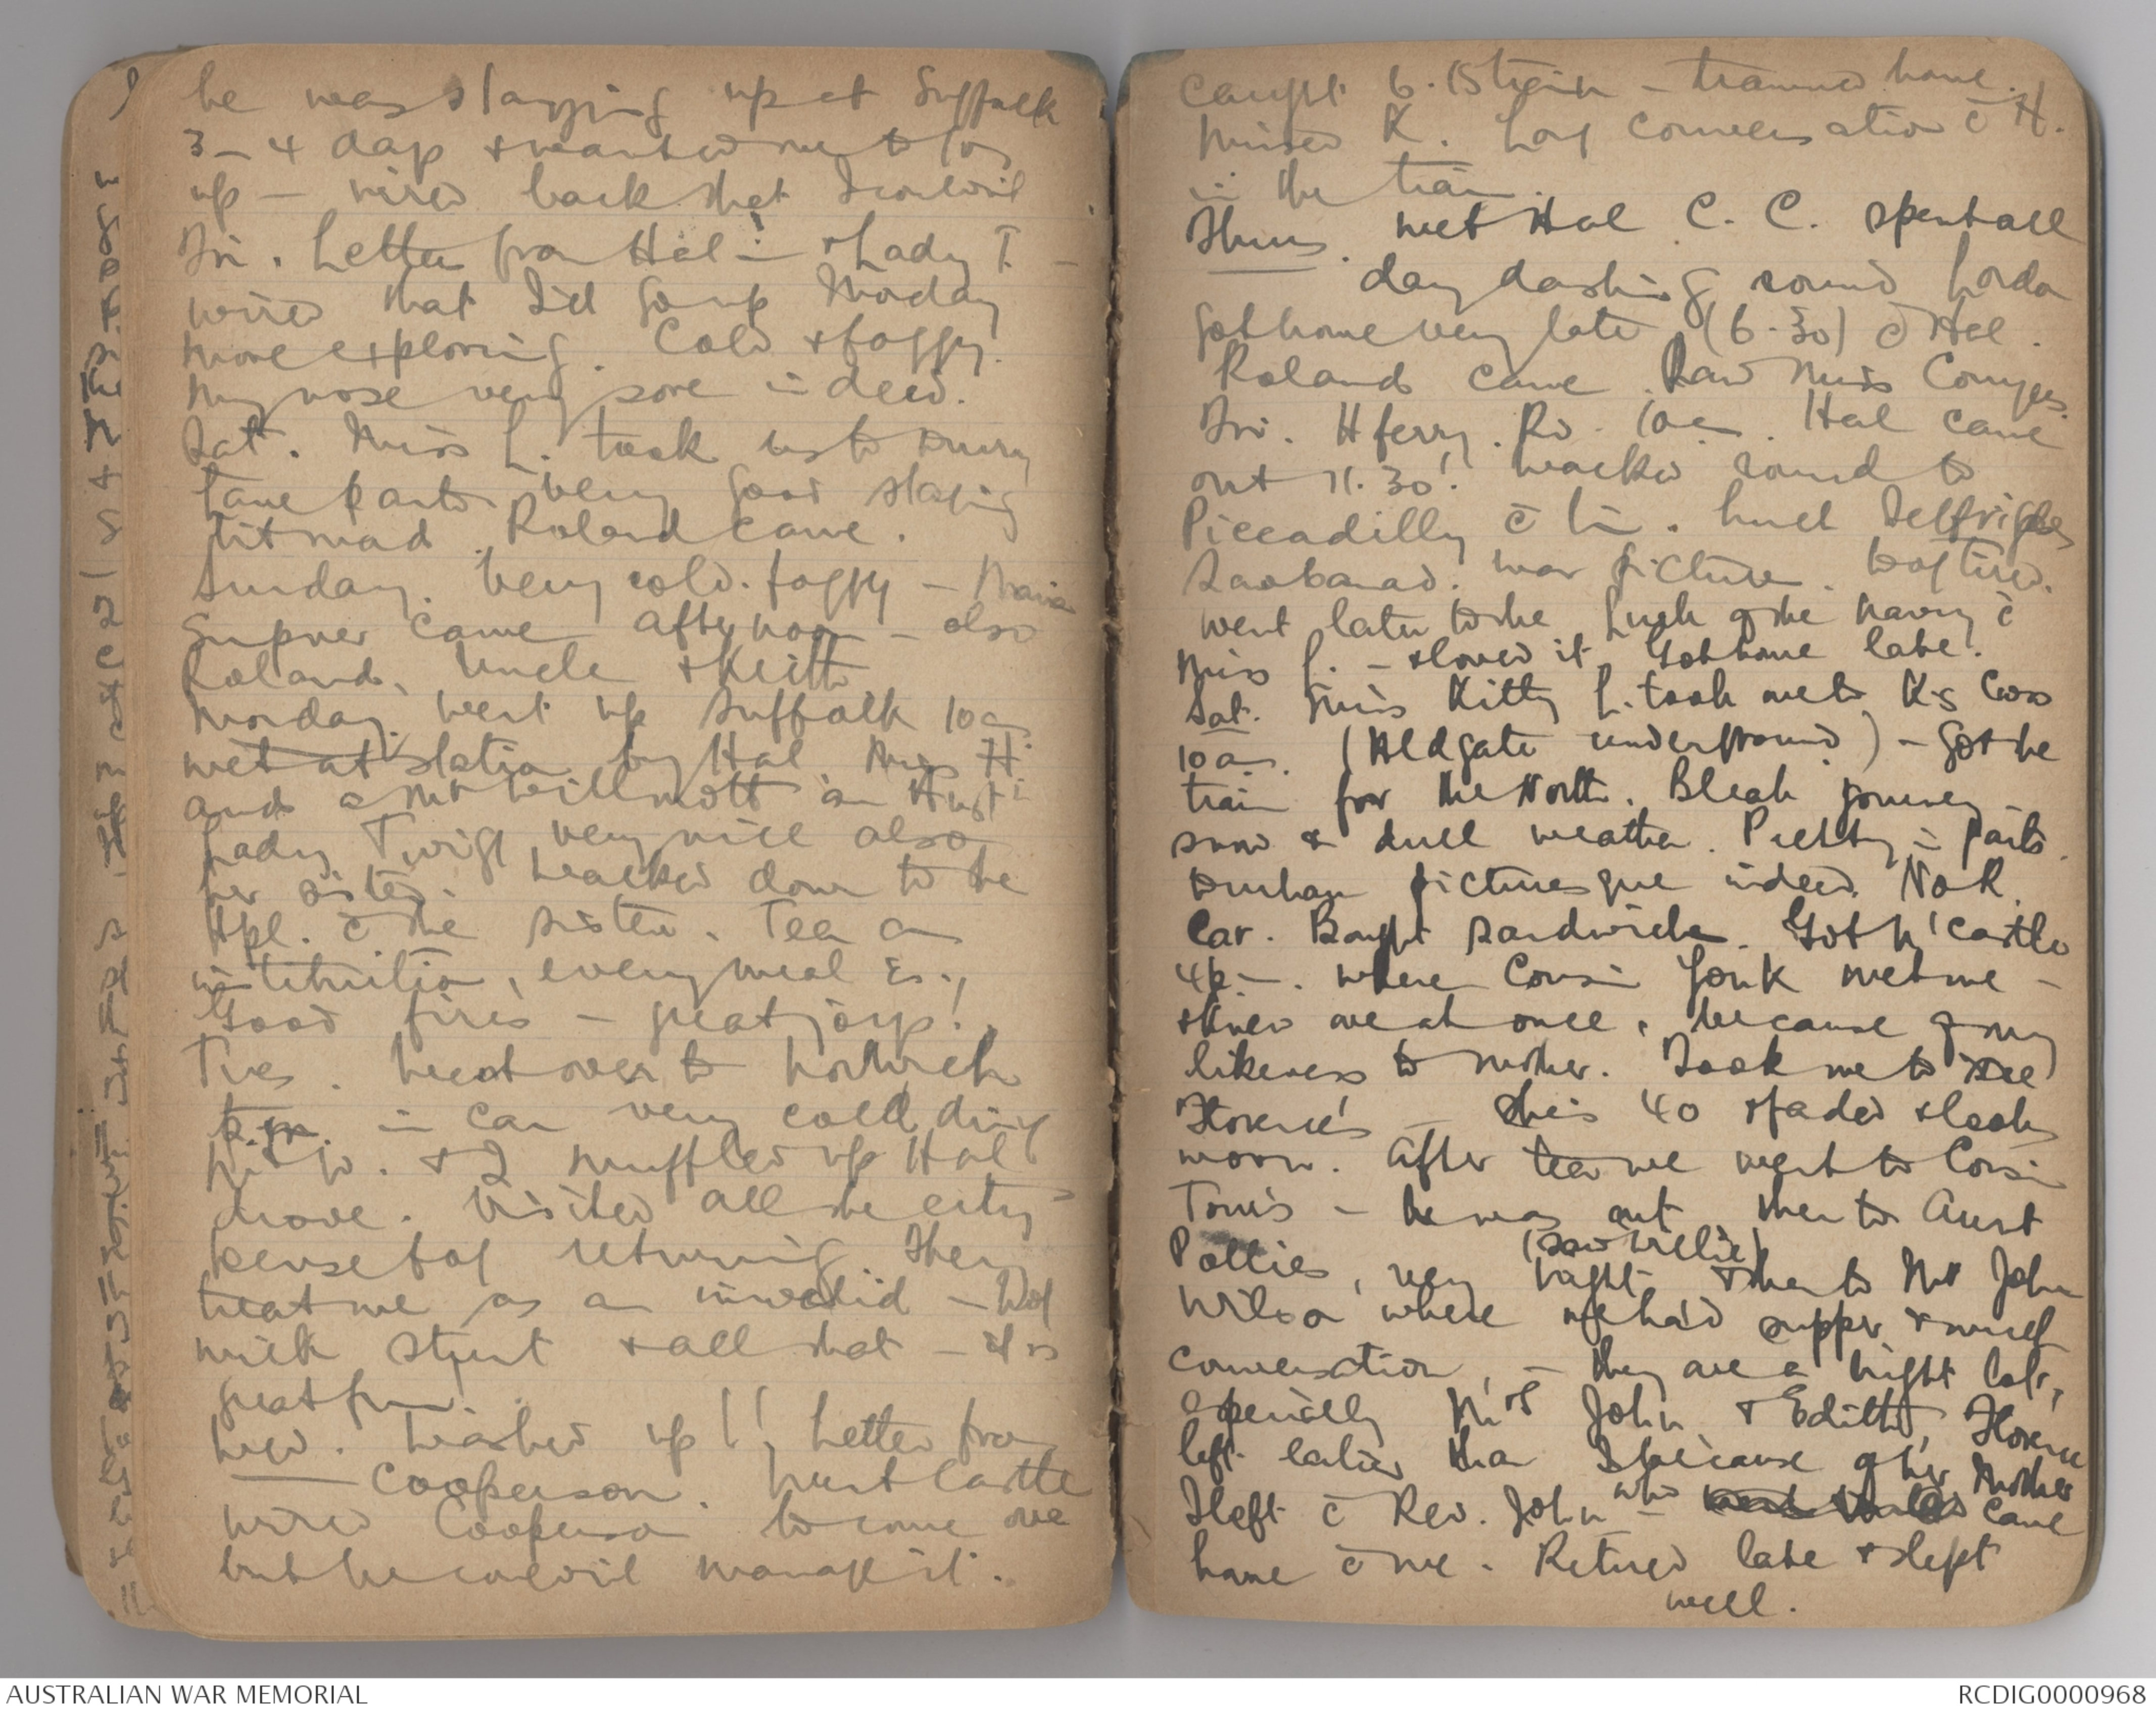 he was staying up at Suffolk
3-4 days & wanted me to go
up - wired back that I couldn't
Fri. Letter from Hal & Lady T. -
wired that I'd go up Monday
more exploring. Cold & foggy.
My nose very sore indeed.
Sat. Miss L. took us to Drury
Lane Panto. Very good staging
. Roland came.
Sunday. Very cold. foggy -
came afternoon - also
Roland, Uncle & Keith
Monday went up Suffolk 10am
met at station by Hal Miss H
and a Mr Willmott an
Lady Twigg very nice also
her sister. Walked down to the
Hpl. c̄ the sister. Tea an
institution, every meal is,
Good fires - great joys!
Tues. Went over to Norwich
in car very cold drive
& I muffled up Hal
drove. Visited all the city
dense fog returning. They
treat me as an invalid - Hot
milk stunt & all that - it is
great fun.
Wed. Washed up!! Letter from
Cooperson. Hurst Castle
wired Cooperson to come over
but he couldn't manage it.
Caught 6.15 train - trammed home.
Missed K. Long conversation c̄ H.
in the train.
Thurs. met Hal C. C. spent all
day dashing round London
Got home very late (6-30) c̄ Hal.
Roland came. Saw Miss Conyers.
Fri. H ferry. Rd. 10am. Hal came
out 11.30! walked round to
Piccadilly c̄ him. Lunch Selfridges
. War picture. Dog tired.
Went later to the Lush of the Navy c̄
Miss L. - & loved it. Got home late.
Sat. Miss Kitty L. took me to K's Cross
10am. (Aldgate underground) - Got the
train for the North. Bleak journey -
snow & dull weather. Pretty in parts.
Durham picturesque indeed. No R.
Car. Bought sandwiches. Got N'castle
4p.m. where Cousin York met me -
& knew me at once, because of my
likeness to mother. Took me to see
Florence's - She is 40 & faded & looks
worn. After tea we went to Cousin
Tom's - he was out then to Aunt
(saw Willie)
Pollies, very bright & then to Mr John
Wilson where we had supper & much
conversation, - they are a bright lot,
especially Mrs John & Edith, Florence
left earlier than I because of her Mother
I left c̄ Rev. John - who came
home c̄ me. Retired late & slept
well.
AUSTRALIAN WAR MEMORIAL
RCDIG0000968